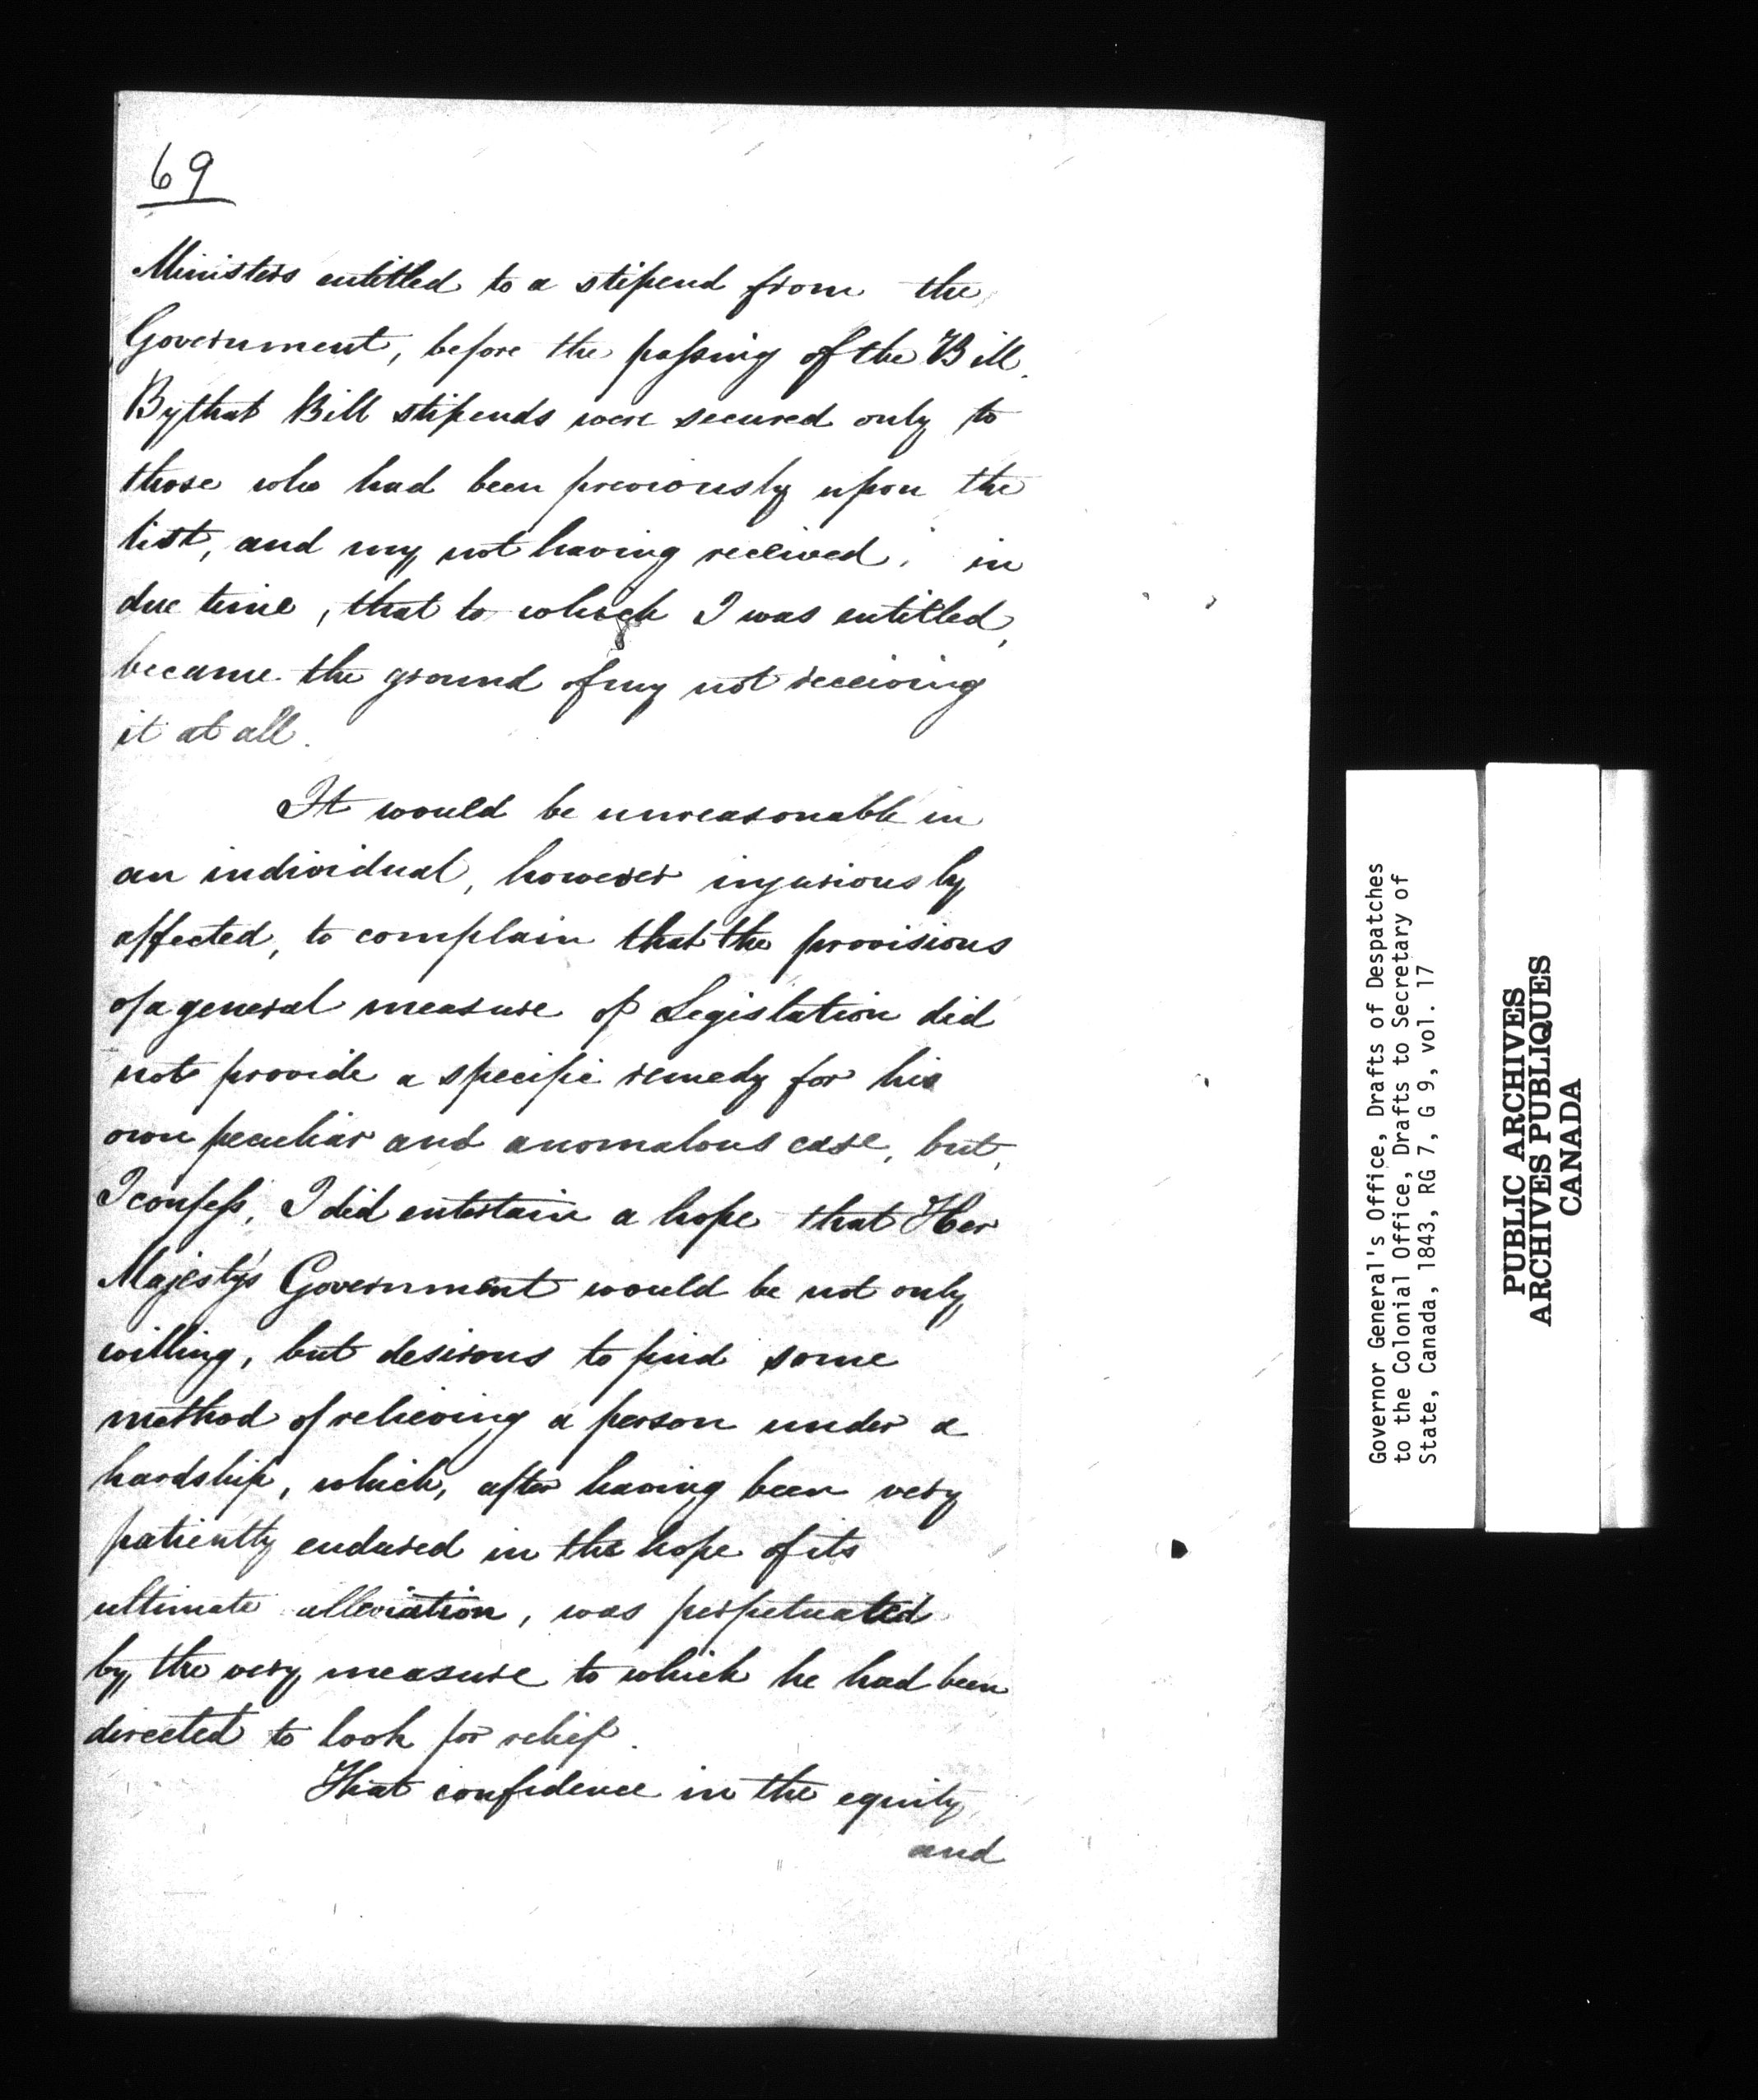 69
Ministers entitled to a stipend from the
Government, before the passing of the Bill.
By that Bill stipends were secured only to
those who had been previously upon the
list, and my not having received, in
due time, that to which I was entitled,
became the ground of my not receiving
it at all.
It would be unreasonable in
an individual, however injuriously
affected, to complain that the provisions
of a general measure of Legislation did
not provide a specific remedy for his
own peculiar and anomalous case, but,
I confess, I did entertain a hope that Her
Majesty's Government would be not only
willing, but desirous to find some
method of relieving a person under a
hardship, which, after having been very
patiently endured in the hope of its
ultimate alleviation, was perpetuated
by the very measure to which he had been
directed to look for relief.
That confidence in the equity
and
Governor General's Office, Drafts of Despatches
to the Colonial Office, Drafts to Secretary of
State, Canada, 1843, RG 7, G 9, vol. 17
PUBLIC ARCHIVES
ARCHIVES PUBLIQUES
CANADA